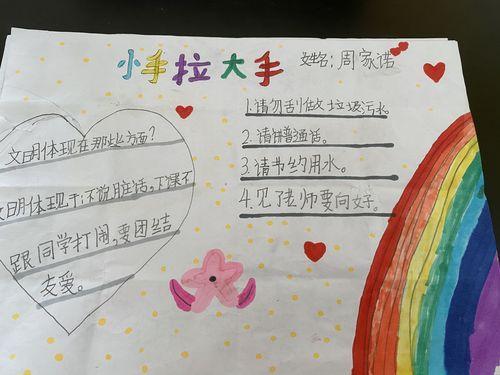 小手拉大手
姓名：周家诺
文明体现在那些方面？
文明体现于：不说脏话，下课不
跟同学打闹，要团结
友爱。
1.请勿乱倒垃圾污水。
2.请讲普通话。
3.请节约用水。
4.见了老师要问好。